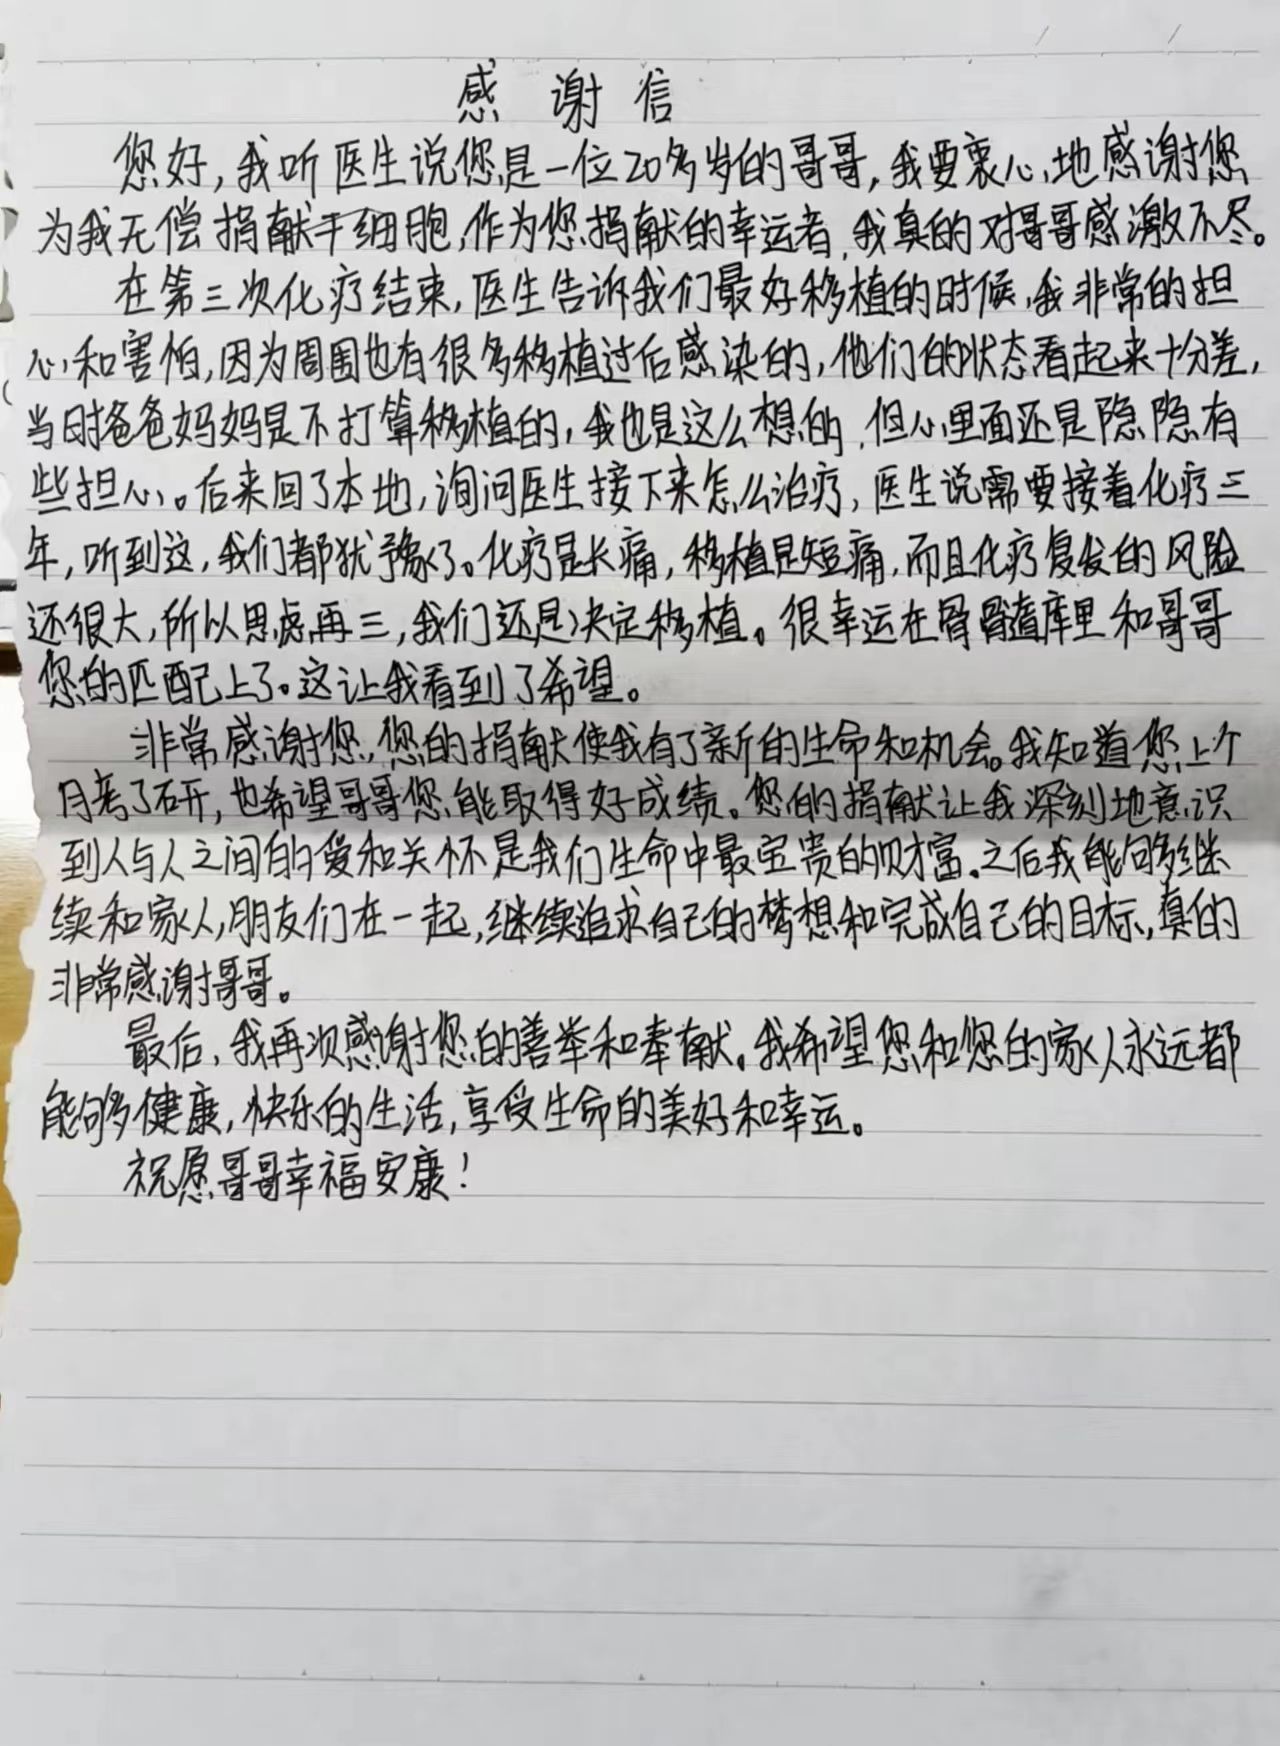 感谢信
您好,我听医生说您是一位20多岁的哥哥,我要衷心地感谢您
为我无偿捐献干细胞,作为您捐献的幸运者,我真的对哥哥感激不尽。
在第三次化疗结束,医生告诉我们最好移植的时候,我非常的担
心和害怕,因为周围也有很多移植过后感染的,他们的状态看起来十分差,
当时爸爸妈妈是不打算移植的,我也是这么想的,但心里面还是隐隐有
些担心。后来回了本地,询问医生接下来怎么治疗,医生说需要接着化疗三
年,听到这,我们都犹豫了。化疗是长痛,移植是短痛,而且化疗复发的风险
还很大,所以思虑再三,我们还是决定移植。很幸运在骨髓库里和哥哥
您的匹配上了。这让我看到了希望。
非常感谢您,您的捐献使我有了新的生命和机会。我知道您上个
月考了研,也希望哥哥您能取得好成绩。您的捐献让我深刻地意识
到人与人之间的爱和关怀是我们生命中最宝贵的财富。之后我能够继
续和家人,朋友们在一起,继续追求自己的梦想和完成自己的目标,真的
非常感谢哥哥。
最后,我再次感谢您的善举和奉献。我希望您和您的家人永远都
能够健康,快乐的生活,享受生命的美好和幸运。
祝愿哥哥幸福安康!